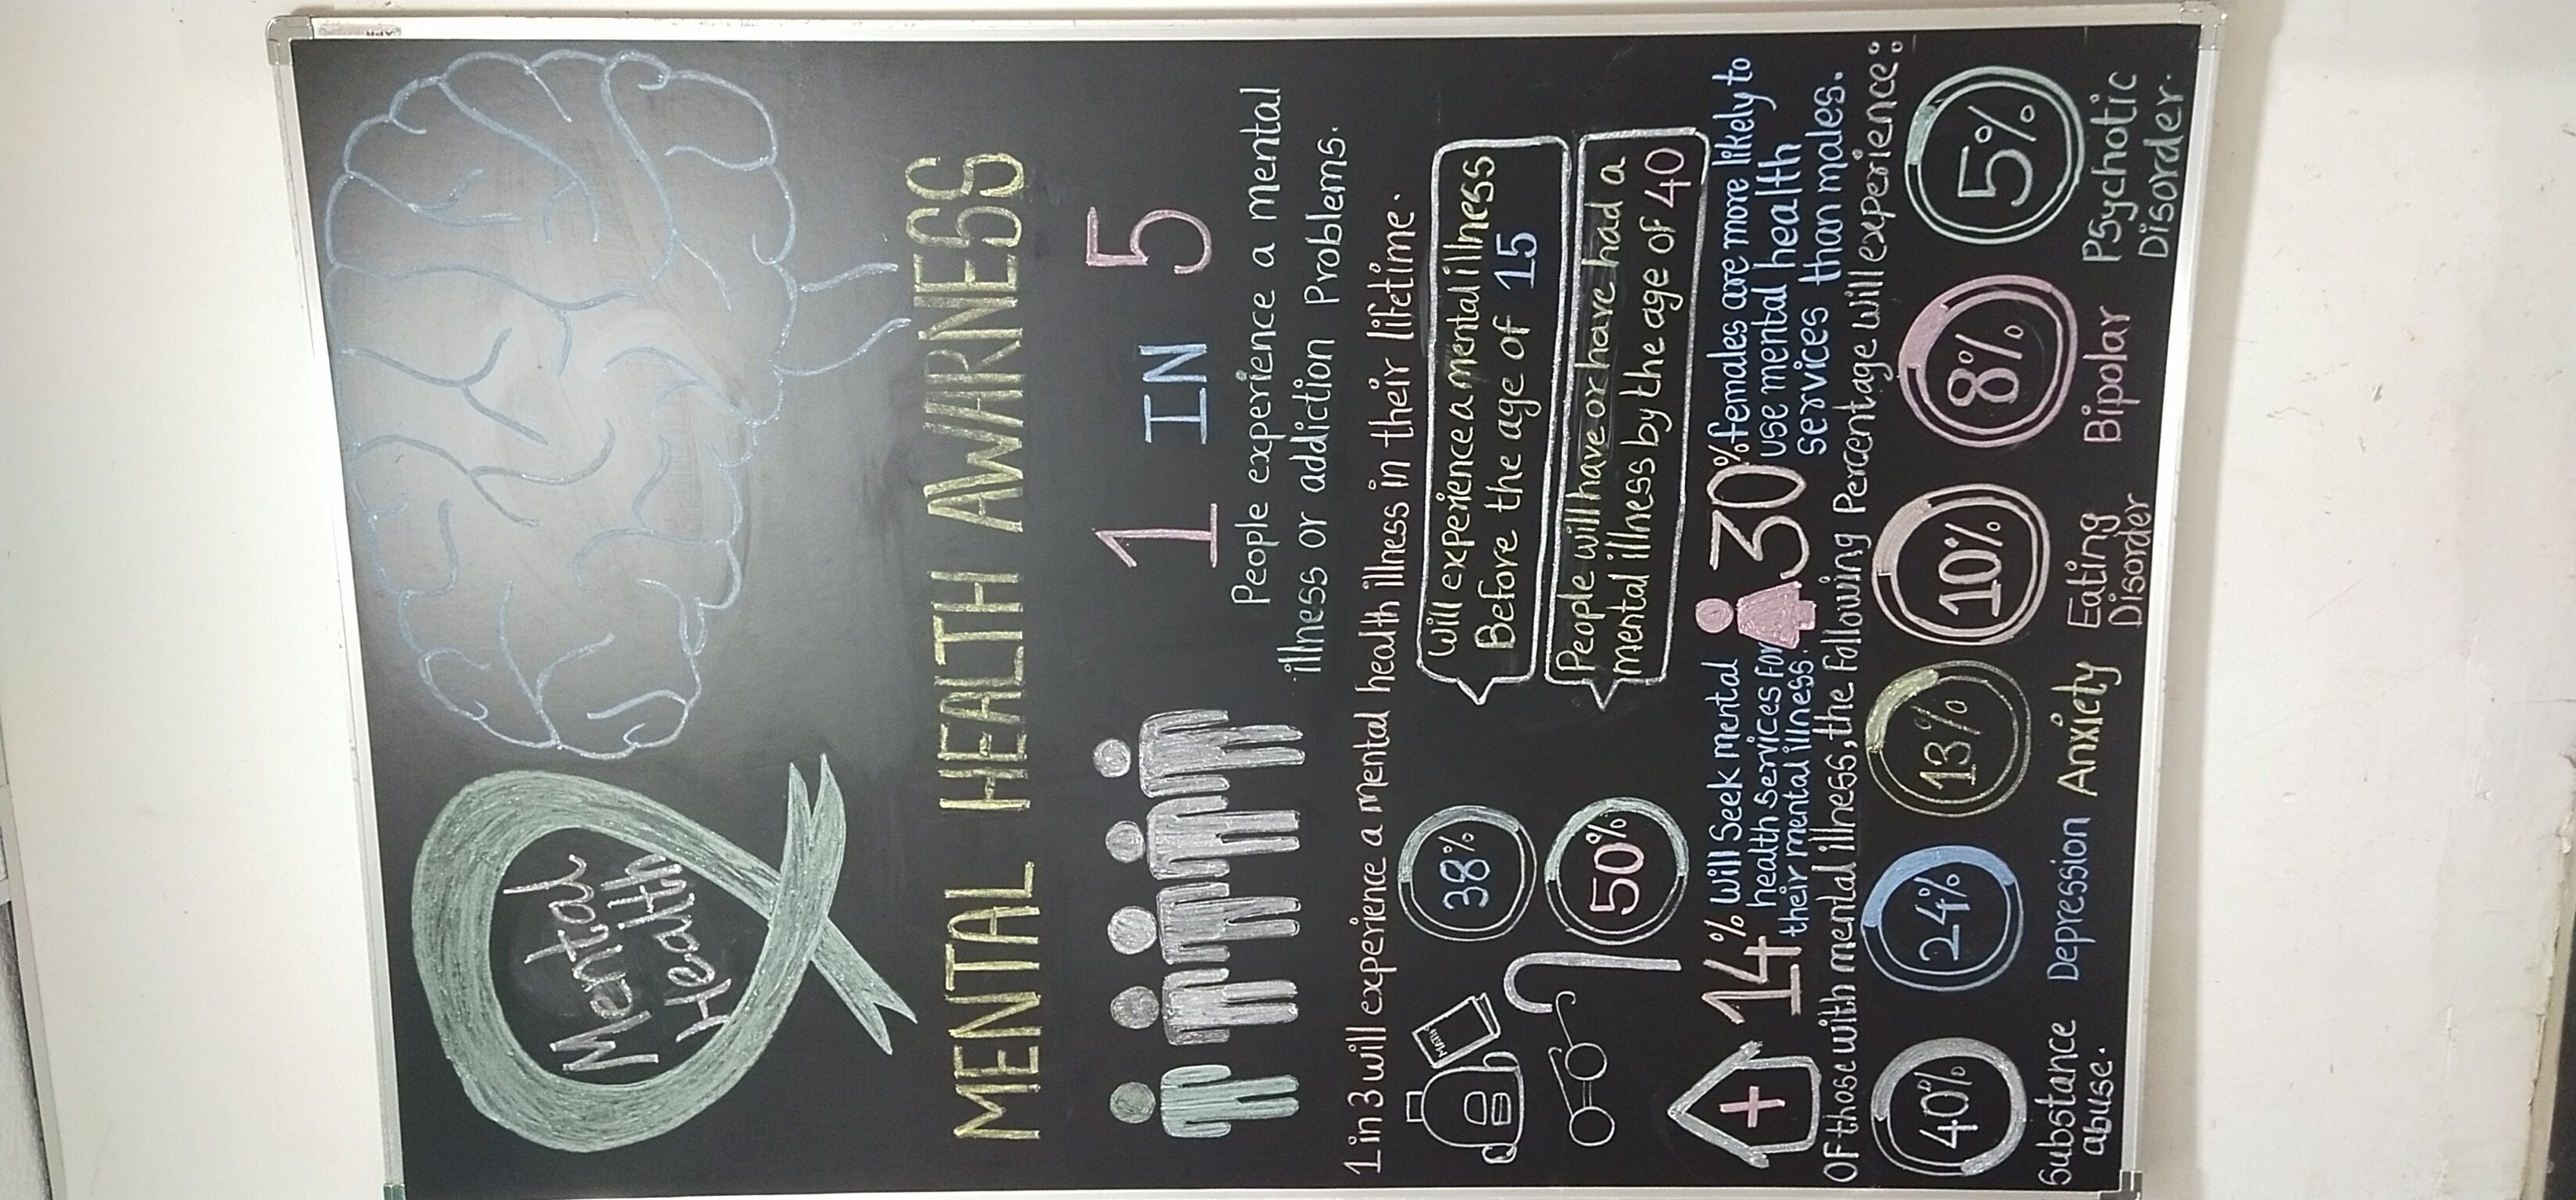 Mental
Health
MENTAL HEALTH AWARNESS
1 IN 5
People experience a mental
illness or addiction Problems.
1 in 3 will experience a mental health illness in their lifetime.
MATH
38%
Will experience a mental illness
Before the age of 15
50%
People will have or have had a
mental illness by the age of 40
14% will seek mental
health services for
their mental illness.
30% females are more likely to
use mental health
services than males.
OF those with mental illness, the following Percentage will experience:
40%
24%
13%
10%
8%
5%
Substance
abuse.
Depression
Anxiety
Eating
Disorder
Bipolar
Psychotic
Disorder.